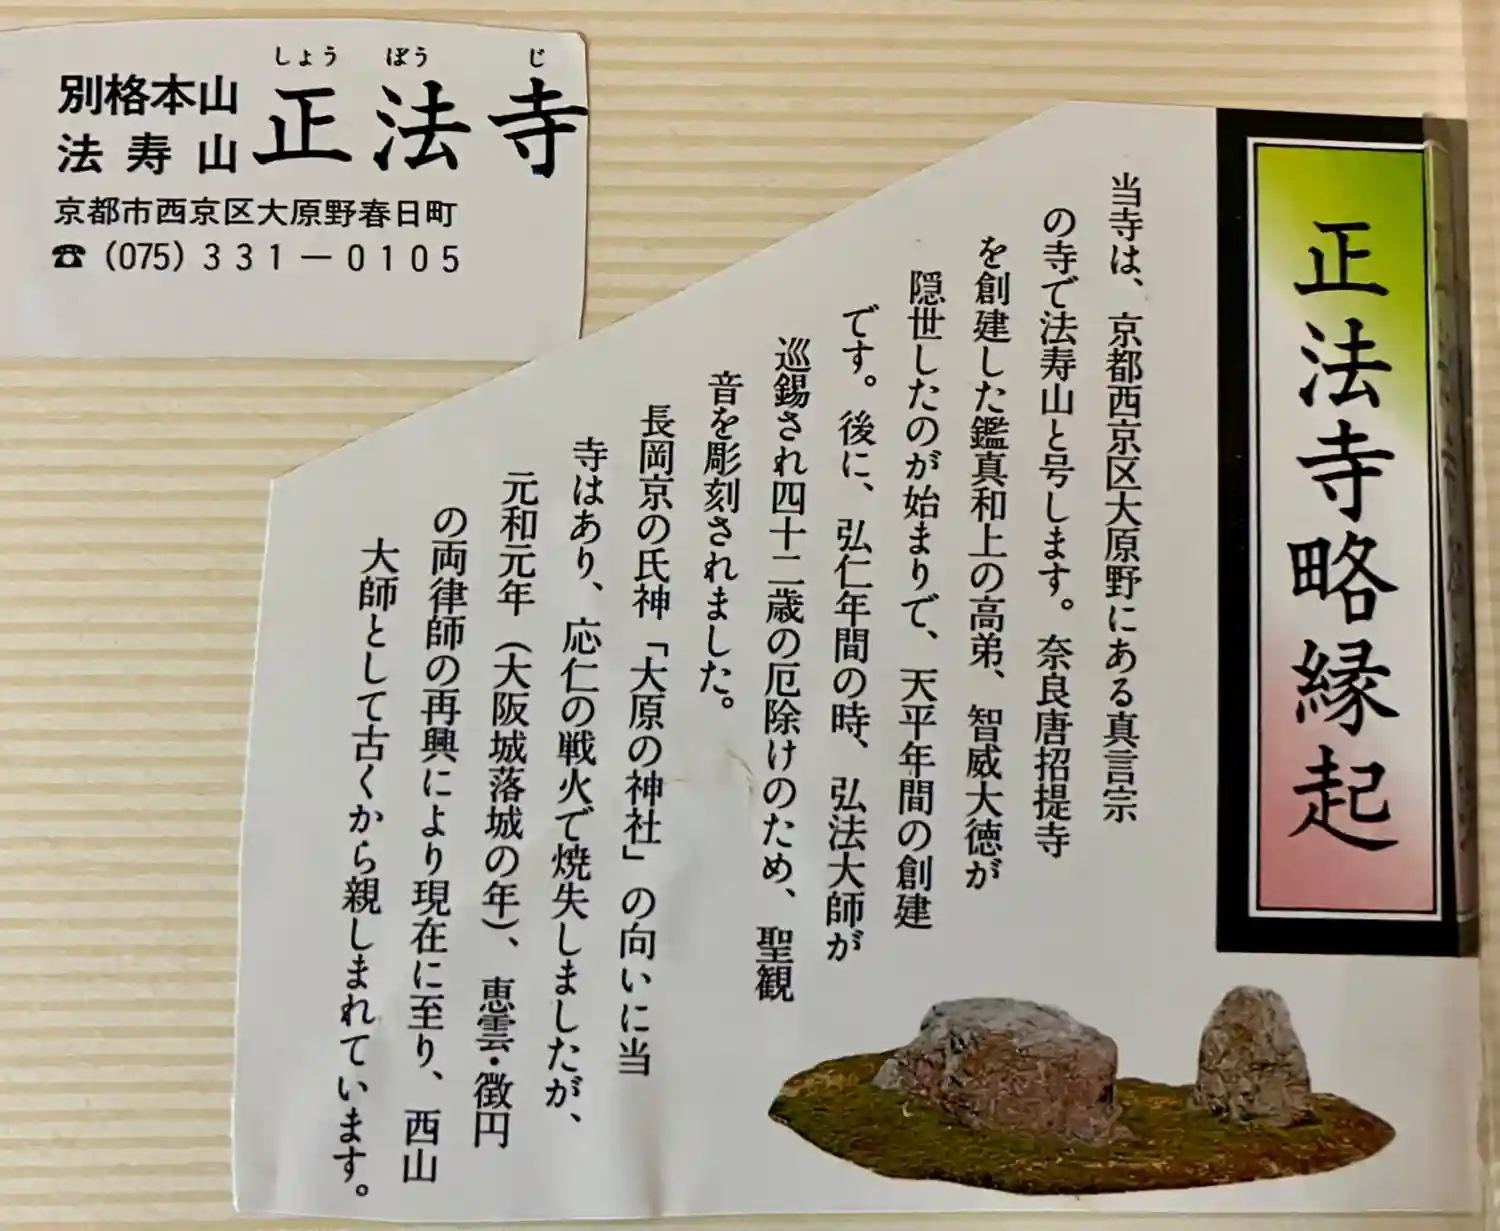 しょう ぼう じ
別格本山
法寿山 正法寺
京都市西京区大原野春日町
☎(075)331－0105
正法寺略縁起
当寺は、京都西京区大原野にある真言宗
の寺で法寿山と号します。奈良唐招提寺
を創建した鑑真和上の高弟、智威大徳が
隠世したのが始まりで、天平年間の創建
です。後に、弘仁年間の時、弘法大師が
巡錫され四十二歳の厄除けのため、聖観
音を彫刻されました。
長岡京の氏神「大原の神社」の向いに当
寺はあり、応仁の戦火で焼失しましたが、
元和元年（大阪城落城の年）、恵雲・徴円
の両律師の再興により現在に至り、西山
大師として古くから親しまれています。